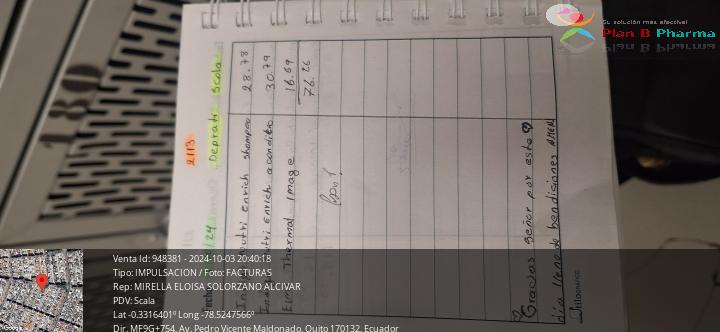 Su solución más efectiva!
Plan B Pharma
180
2113
Depratti Scala
Nutri Enrich shampoo 28.78
Nutri Enrich acondit 30.79
Thermal Image 16.69
76.26
Gracias señor por este
día lleno de bendiciones AMEN
Venta Id: 948381 - 2024-10-03 20:40:18
Tipo: IMPULSACION / Foto: FACTURAS
Rep: MIRELLA ELOISA SOLORZANO ALCIVAR
PDV: Scala
Lat -0.3316401º Long -78.5247566º
Dir. MF9G+754, Av. Pedro Vicente Maldonado, Quito 170132, Ecuador
Google